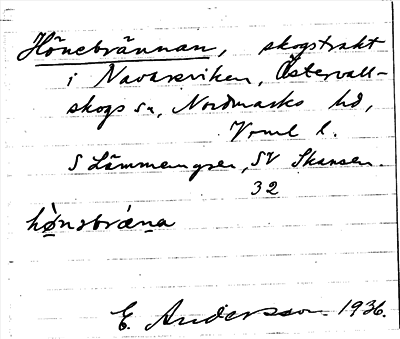 Hönebrännan, skogstrakt
i Navarviken, Östervall-
skogs sn, Nordmarks hd,
Vrml l.
S Lämmengsen, SV Skansen.
32
hònsbrǽna
E. Andersson 1936.